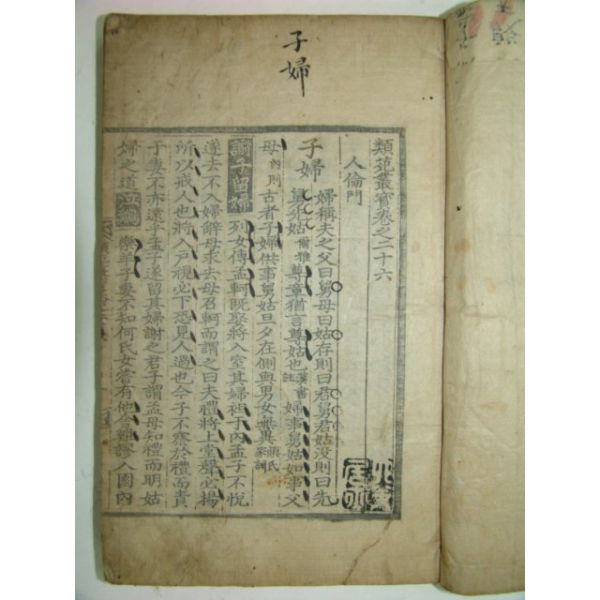 子婦
類苑叢寶卷之二十六
人倫門
子婦 婦稱夫之父曰舅母曰姑存則曰君舅君姑没則曰先
舅先姑 爾雅 尊章猶言尊姑也 漢書註 婦事舅姑如事父
母 內則 古者子婦供事舅姑旦夕在側與男女無異 顏氏家訓
謝子留婦 列女傳孟軻既娶將入室其婦袒于內孟子不悅
遂去不入婦辭母求去母召軻而謂之曰夫禮將上堂聲必揚
所以戒人也將入戶視必下恐見人過也今子不察於禮而責
於妻不亦遠乎孟子遂留其婦謝之君子謂孟母知禮而明姑
婦之道 樂羊子妻不知何氏女嘗有他舍雞謬入園內